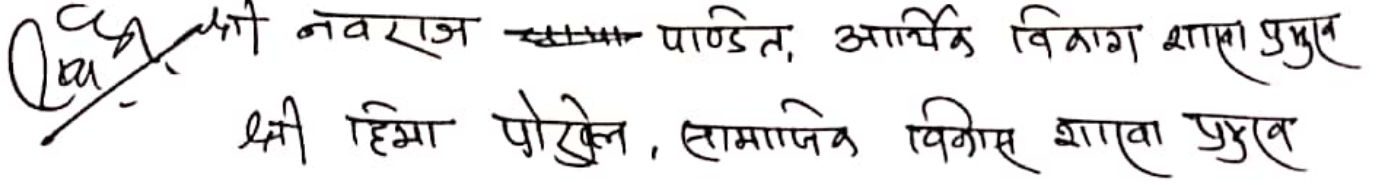 श्री नवराज पाण्डित, आर्थिक विकास शाखा प्रमुख
श्री हिमा पोखेल, सामाजिक विकास शाखा प्रमुख